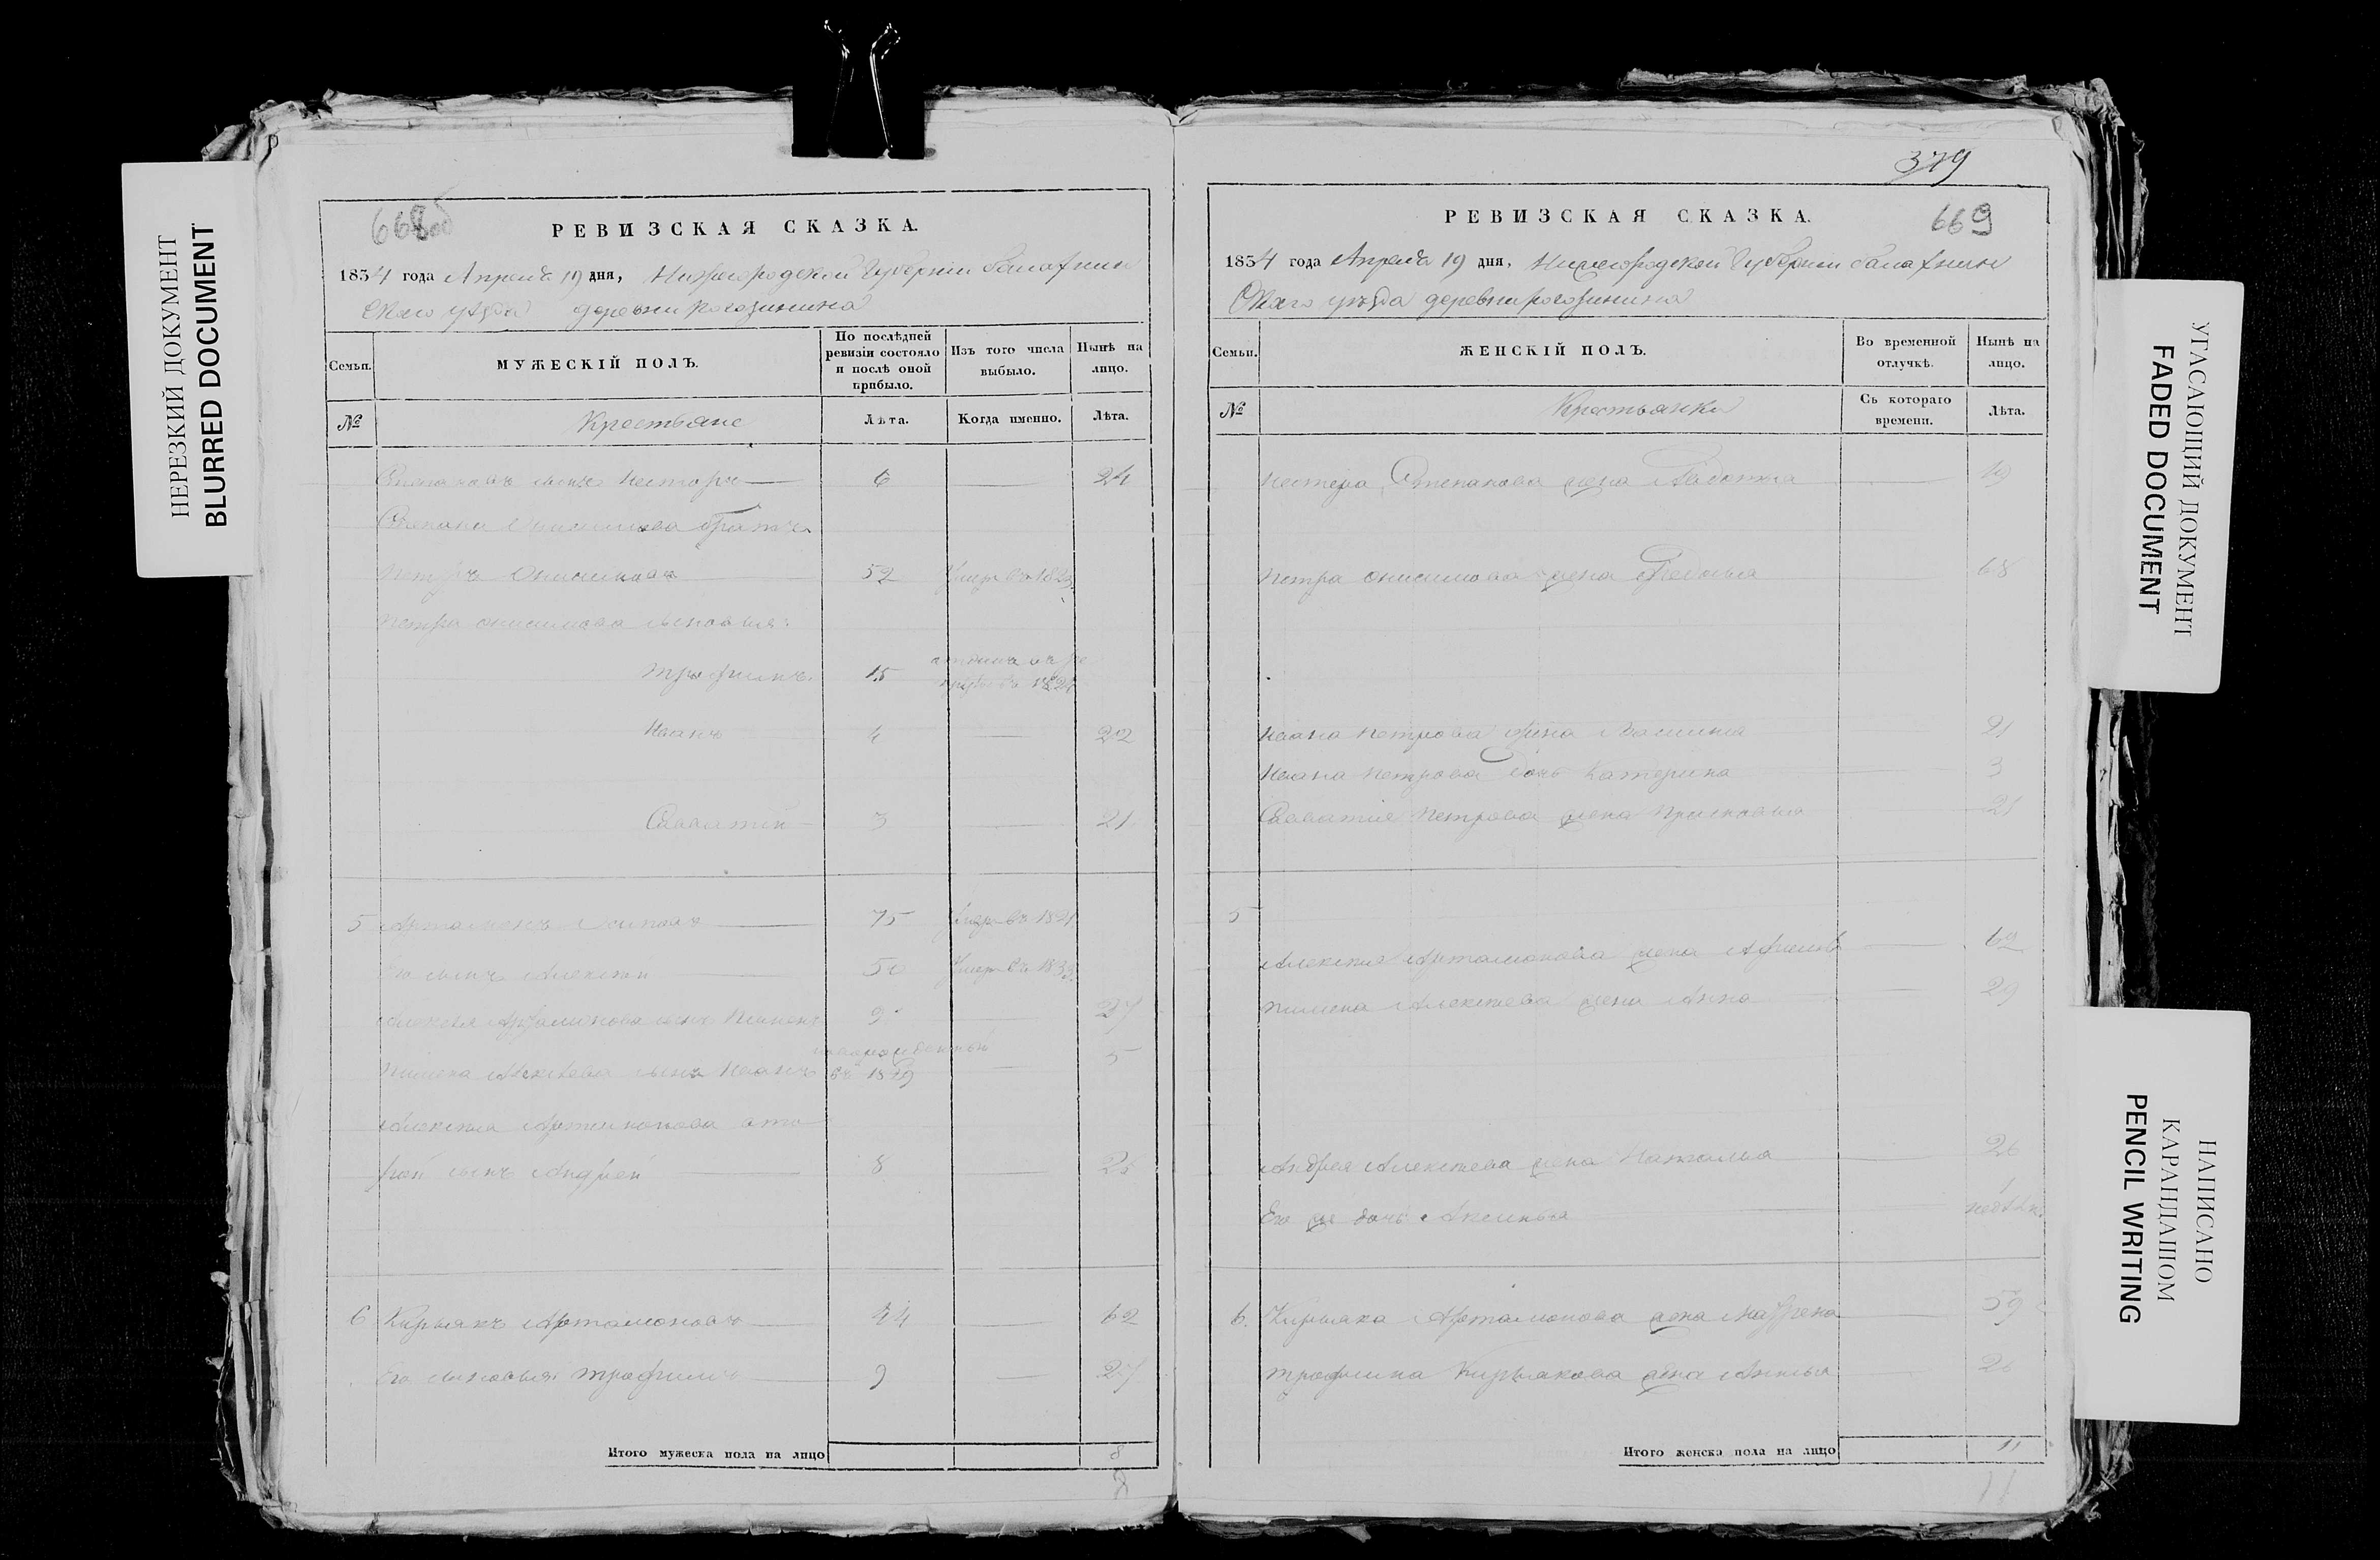 НЕРЕЗКИЙ ДОКУМЕНТ
BLURRED DOCUMENT
668об
РЕВИЗСКАЯ СКАЗКА.
1834 года Апреля 19 дня, Нижегородской Губернии Балахнин
скаго уѣзда деревни Рогозинина
Семьи.
МУЖЕСКІЙ ПОЛЪ.
По послѣдней ревизіи состояло и послѣ оной прибыло.
Изъ того числа выбыло.
Нынѣ на лицо.
№
Крестьяне
Лѣта.
Когда именно.
Лѣта.
Степановъ сынъ Несторъ 6 24
Степана Онисимова братъ
Петръ Онисимовъ 52 Умеръ въ 1823
Петра Онисимова сыновья:
Трофимъ 15 1824
Иванъ 4 22
Савватій 3 21
5 Артамонъ Осиповъ 75 Умеръ въ 1821
Его сынъ Алексѣй 50 Умеръ въ 1833
Алексѣя Артамонова сынъ Пименъ 9 27
Пимена Алексѣева сынъ Иванъ новорожденный въ 1829 5
Алексѣя Артамонова вто
рой сынъ Андрей 8 26
6 Кирьякъ Артамоновъ 44 62
Его сыновья: Трофимъ 9 27
Итого мужеска пола на лицо 8
8
379
РЕВИЗСКАЯ СКАЗКА.
669
1834 года Апреля 19 дня, Нижегородской Губернии Балахнин
Скаго уѣзда деревни Рогозинина
Семьи.
ЖЕНСКІЙ ПОЛЪ.
Во временной отлучкѣ.
Нынѣ на лицо.
№
Крестьянки
Съ котораго времени.
Лѣта.
Нестера Степанова жена Авдотья 19
Петра Онисимова жена Федосья 68
Ивана Петрова жена 21
Ивана Петрова дочь Катерина 3
Савватия Петрова жена Прасковья 21
5
Алексѣя Артамонова жена 62
Пимена Алексѣева жена Анна 29
Андрея Алексѣева жена Наталья 26
Его же дочь Аксинья 1 недѣли
6. Кирьяка Артамонова жена Мавренa 59
Трофима Кирьякова жена 26
Итого женска пола на лицо 11
11
УГАСАЮЩИЙ ДОКУМЕНТ
FADED DOCUMENT
НАПИСАНО КАРАНДАШОМ
PENCIL WRITING